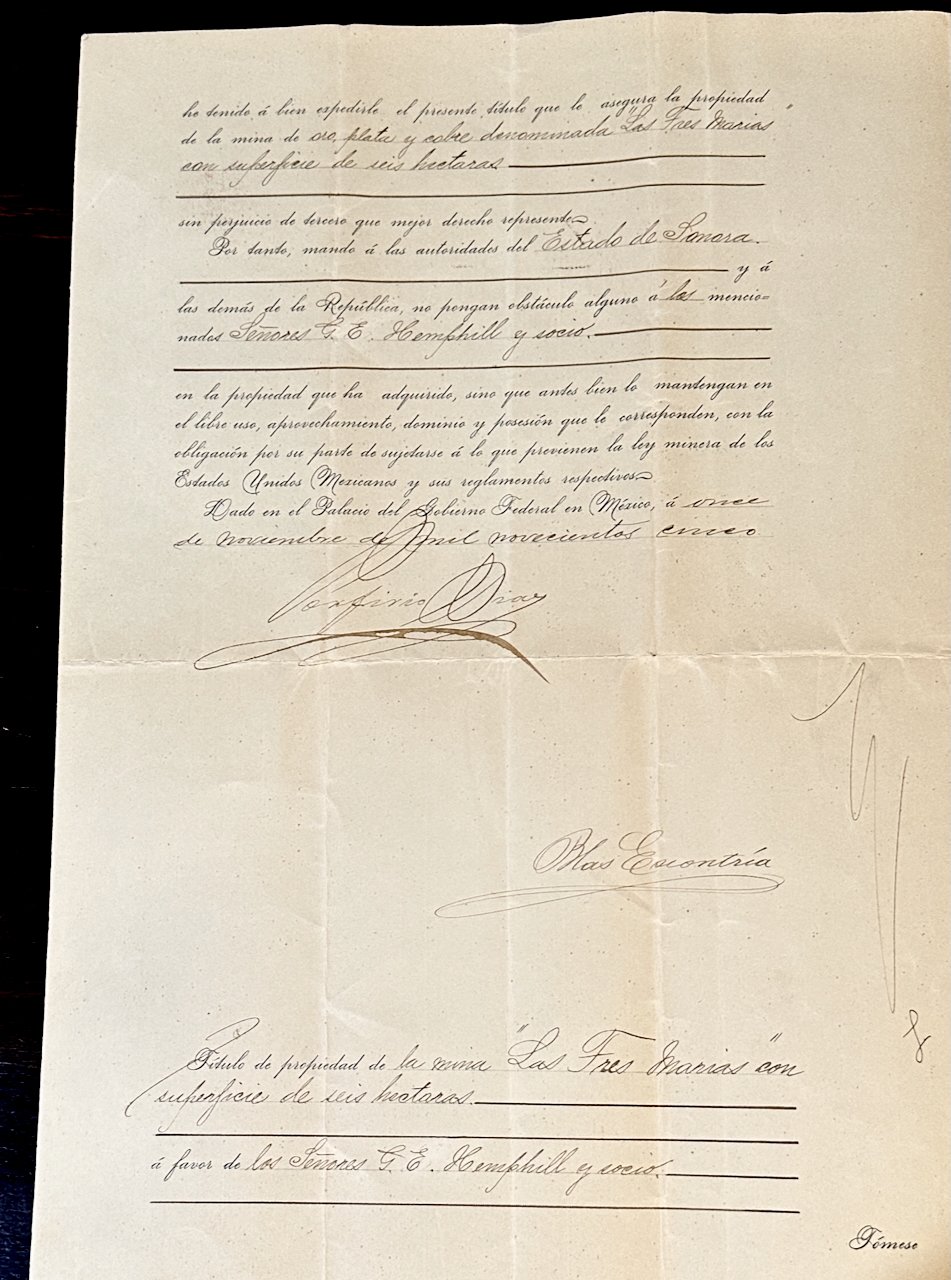 he tenido á bien expedirle el presente título que le asegura la propiedad
de la mina de oro, plata y cobre denominada "Las Tres Marias"
con superficie de seis hectaras
sin perjuicio de tercero que mejor derecho represente
Por tanto, mando á las autoridades del Estado de Sonora.
y á
las demás de la República, no pongan obstáculo alguno á los mencio=
nados Señores G. E. Hemphill y socio.
en la propiedad que ha adquirido, sino que antes bien lo mantengan en
el libre uso, aprovechamiento, dominio y posesión que le corresponden, con la
obligación por su parte de sujetarse á lo que previenen la ley minera de los
Estados Unidos Mexicanos y sus reglamentos respectivos
Dado en el Palacio del Gobierno Federal en México, á once
de noviembre de mil novecientos cinco
Porfirio Diaz
Blas Escontría
Título de propiedad de la mina "Las Tres Marias" con
superficie de seis hectaras.
á favor de los Señores G. E. Hemphill y socio.
Tómese